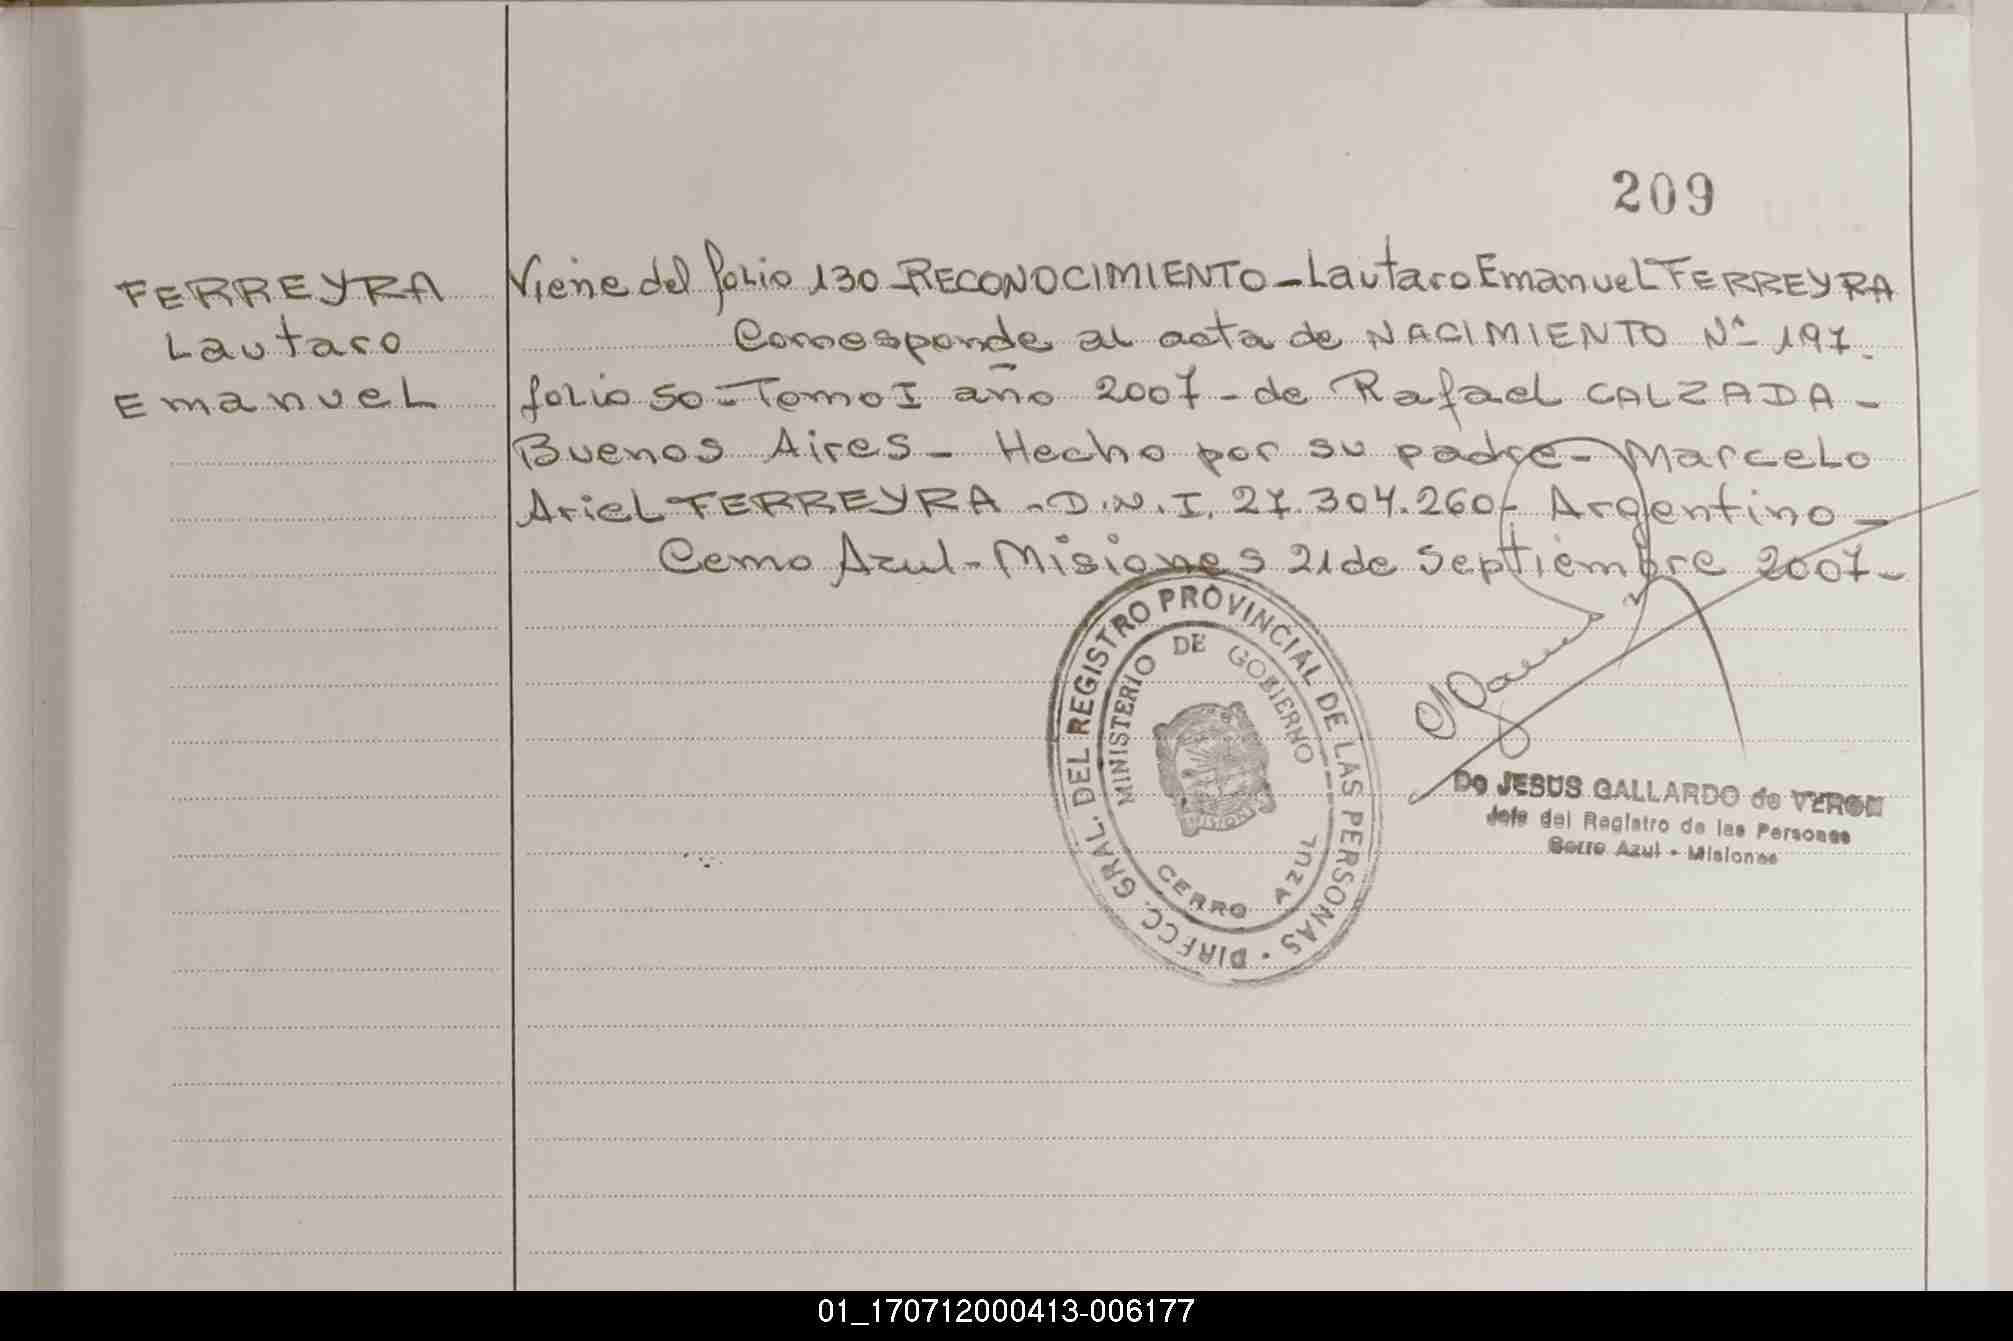 209
FERREYRA
Lautaro
Emanuel
Viene del folio 130 - RECONOCIMIENTO - Lautaro Emanuel FERREYRA
Corresponde al acta de NACIMIENTO Nº 197.
folio 50 - Tomo I año 2007 - de Rafael CALZADA -
Buenos Aires - Hecho por su padre - Marcelo
Ariel FERREYRA - D.N.I. 27.304.260 - Argentino -
Cerro Azul - Misiones 21 de Septiembre 2007 -
DIRECC. GRAL. DEL REGISTRO PROVINCIAL DE LAS PERSONAS
MINISTERIO DE GOBIERNO
MISIONES
CERRO AZUL
De JESUS GALLARDO de VERON
Jefe del Registro de las Personas
Cerro Azul - Misiones
01_170712000413-006177